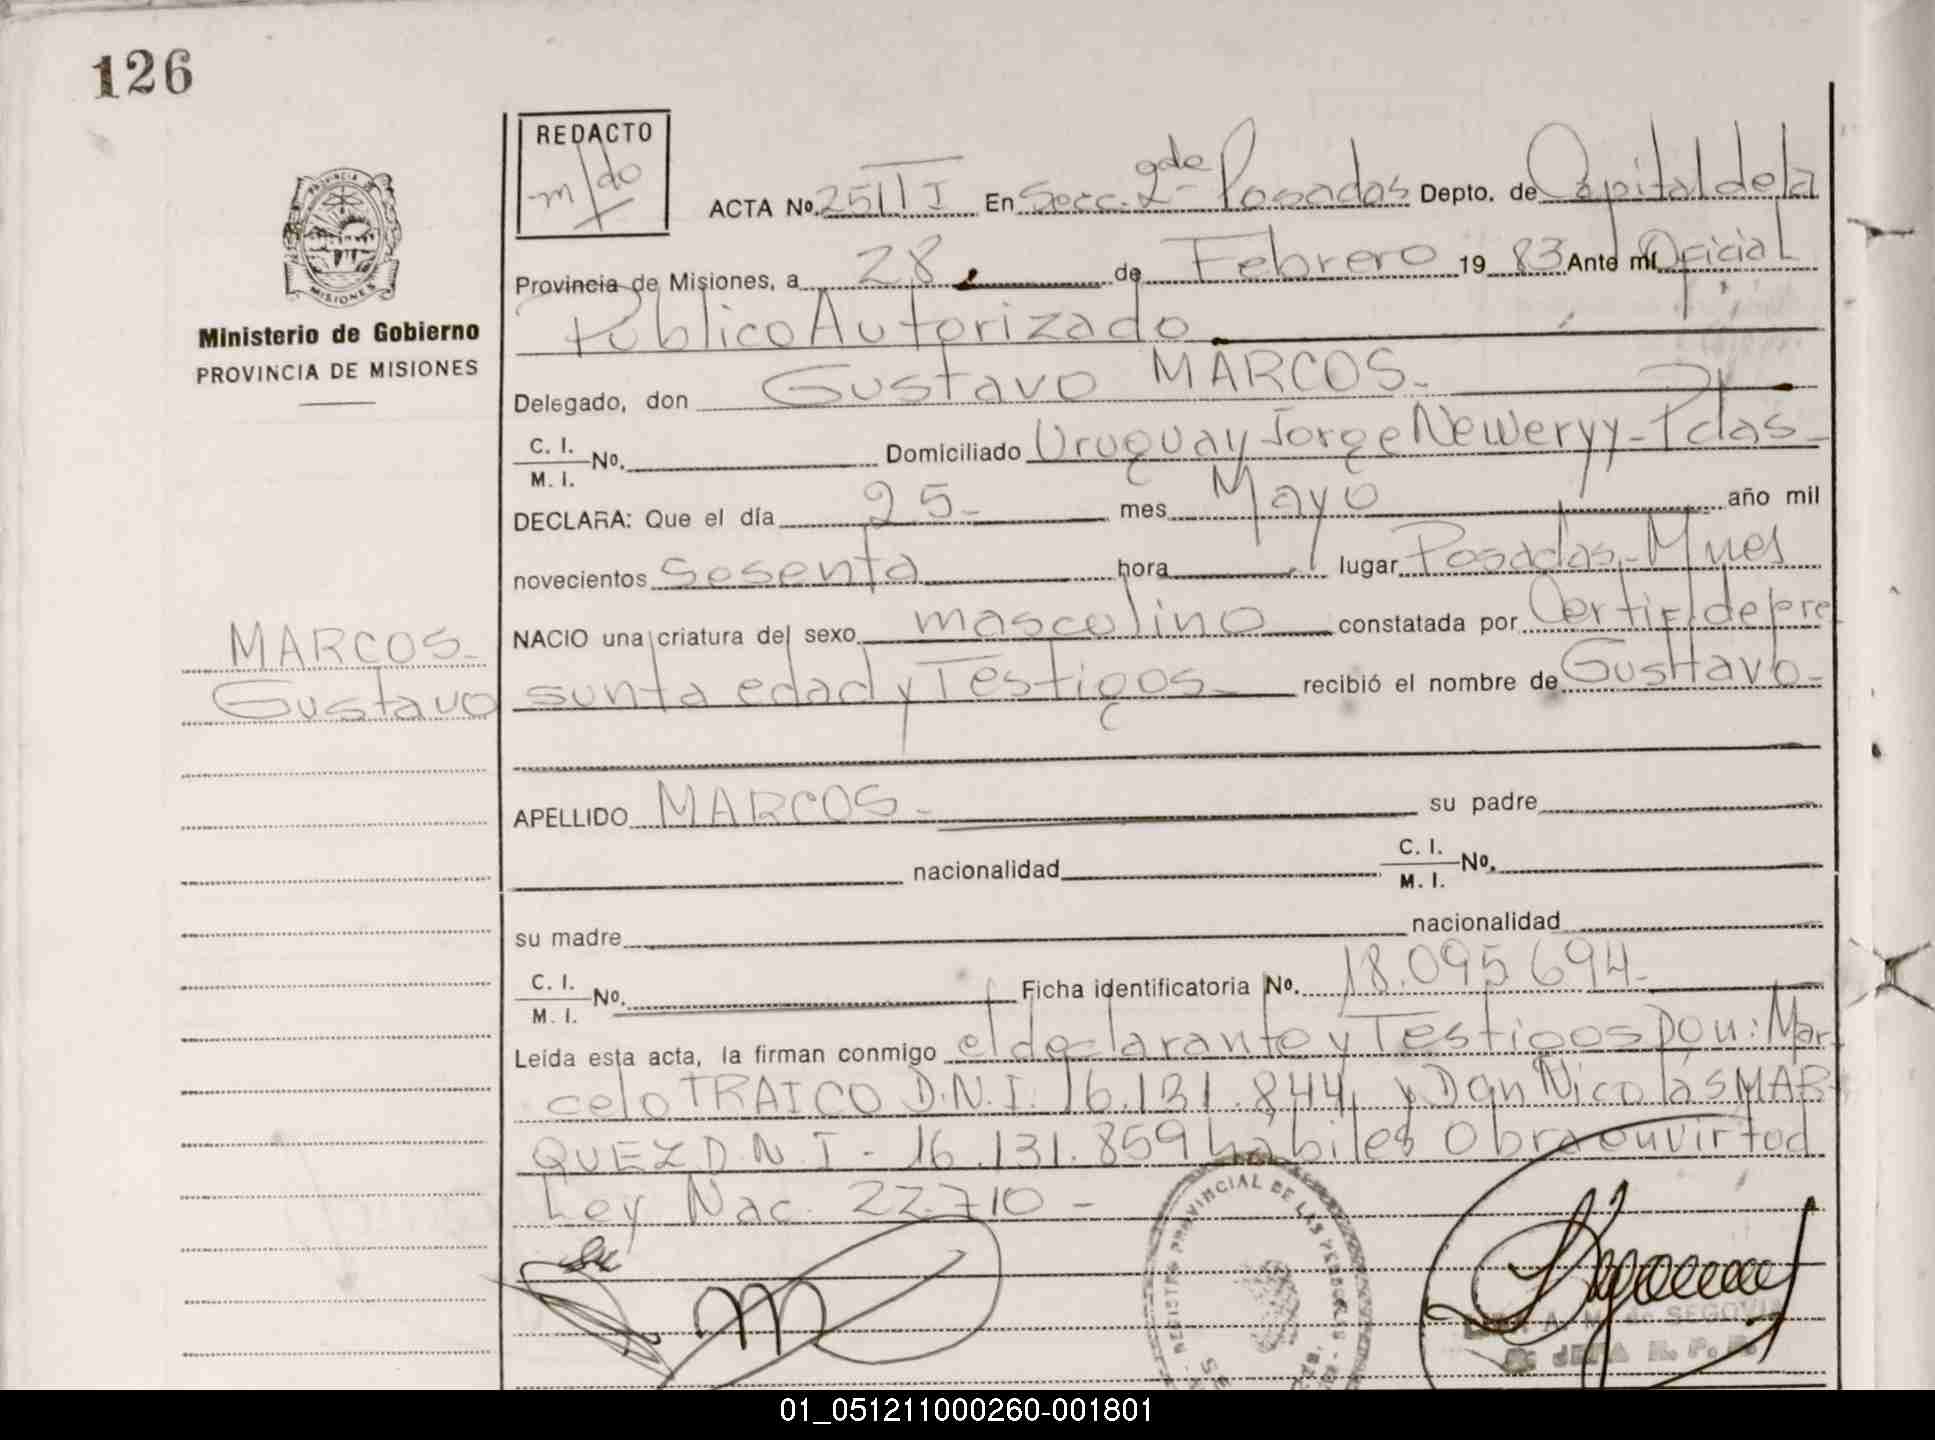 126
REDACTO
m/do
ACTA Nº. 251 T I En Secc. 2da Posadas Depto. de Capital de la
Provincia de Misiones, a 28 de Febrero 19 83 Ante mí Oficial
Publico Autorizado
Ministerio de Gobierno
PROVINCIA DE MISIONES
Delegado, don Gustavo MARCOS.-
C. I.
M. I. Nº. Domiciliado Uruguay Jorge Neweryy - Pdas -
DECLARA: Que el día 25- mes Mayo año mil
novecientos sesenta hora lugar Posadas - Mnes
NACIO una criatura del sexo masculino constatada por Certif. de pre
MARCOS-
Gustavo
sunta edad y Testigos - recibió el nombre de Gusttavo -
APELLIDO MARCOS - su padre
nacionalidad C. I.
M. I. Nº.
su madre nacionalidad
C. I.
M. I. Nº. Ficha identificatoria Nº. 18.095 694-
Leída esta acta, la firman conmigo el declarante y Testigos Don: Mar
celo TRAICO D.N.I. 16.131.844, y Don Nicolás MAR
QUEZ D.N.I - 16.131.859 hábiles Obra en virtud
Ley Nac. 22.710 -
REGISTRO PROVINCIAL DE LAS PERSONAS
A. M. de SEGOVIA
JEFA R. P. P.
01_051211000260-001801